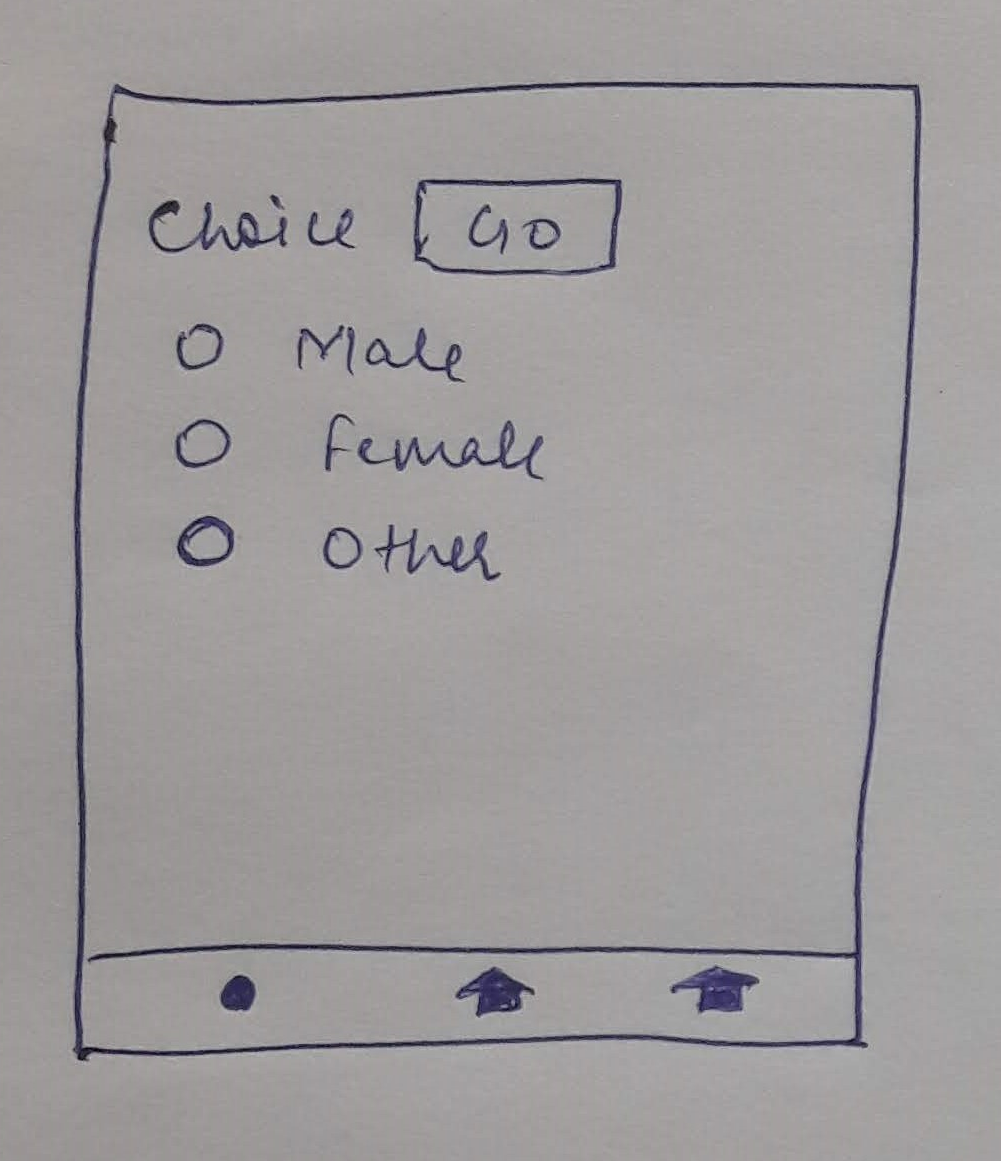 Choice GO
Male
Female
Other